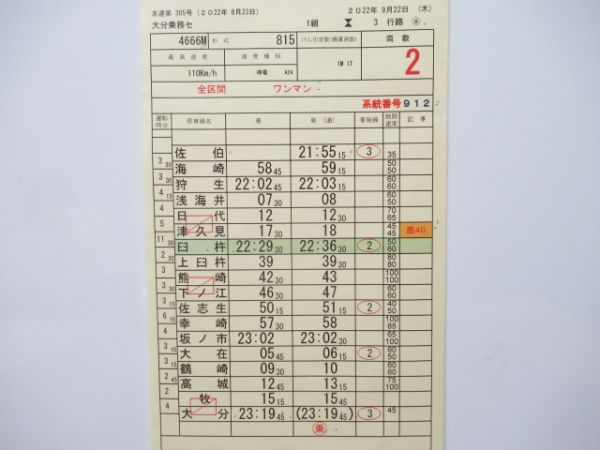 本運第 305号 (2022年 8月23日) 2022年 9月22日 (木)
大分乗務セ 1組 3 行路
4666M 形式 815 けん引定数(換算両数) 両数
最高速度 速度種別 1M 1T 2
110Km/h 停電 A24
全区間 ワンマン
系統番号912
運転時分 停車場名 着 発(通) 着発線 制限速度 記事
佐伯 21:55 15 3 35
3 30 海崎 58 45 59 15 50 50
3 30 狩生 22:02 45 22:03 15 60 60
4 15 浅海井 07 30 08 60 60
4 30 日代 12 12 30 70 65
5 津久見 17 30 18 45 45 農40
11 30 臼杵 22:29 30 22:36 30 2 50 60
3 上臼杵 39 39 30 80 60
3 30 熊崎 42 30 43 100 100
3 30 下ノ江 46 30 47 80 60
3 15 佐志生 50 15 51 15 2 40 50
6 15 幸崎 57 30 58 100 80
4 坂ノ市 23:02 23:02 30 85 65
3 15 大在 05 45 06 15 2 60 50
3 15 鶴崎 09 30 10 60 60
2 45 高城 12 45 13 15 75 100
2 牧 15 15 15 45
4 大分 23:19 45 (23:19 45) 3 45
乗